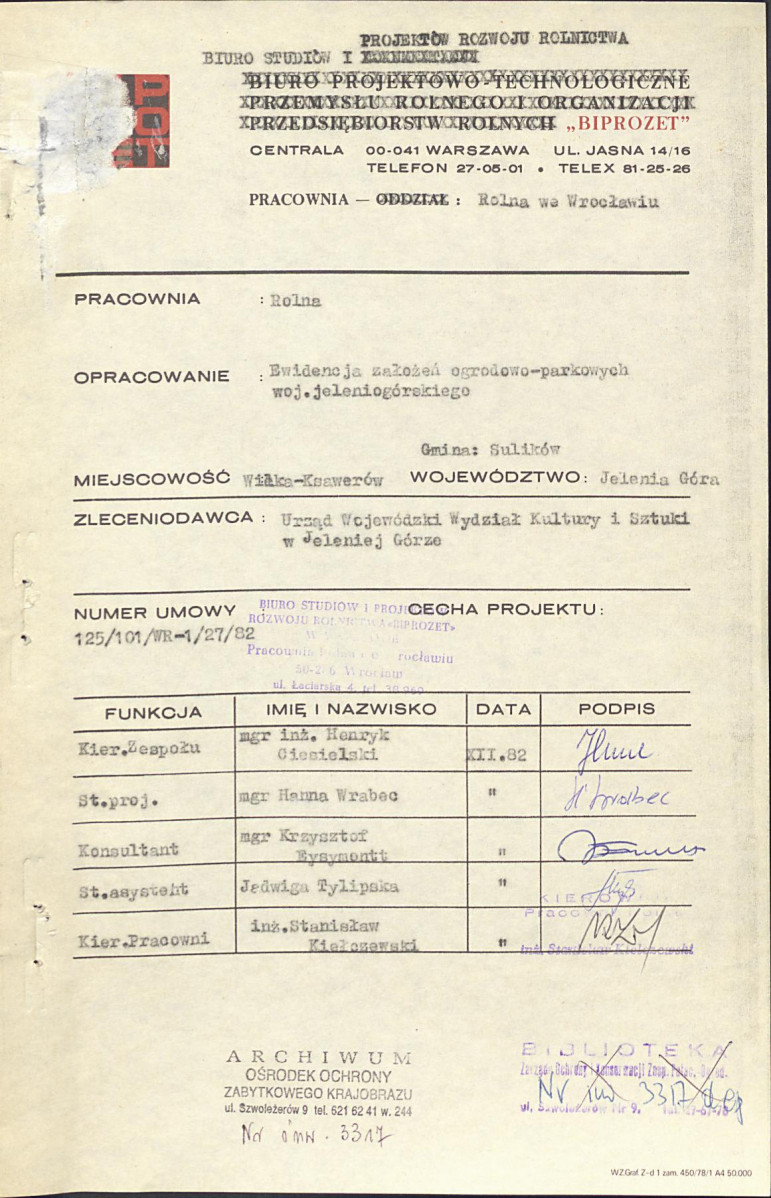 PROJEKTÓW ROZWOJU ROLNICTWA
BIURO STUDIÓW I
BIURO PROJEKTOWO-TECHNOLOGICZNE
PRZEMYSŁU ROLNEGO I ORGANIZACJI
PRZEDSIĘBIORSTW ROLNYCH „BIPROZET”
CENTRALA 00-041 WARSZAWA UL. JASNA 14/16
TELEFON 27-05-01 • TELEX 81-25-26
PRACOWNIA — ODDZIAŁ : Rolna we Wrocławiu
PRACOWNIA : Rolna
OPRACOWANIE : Ewidencja założeń ogrodowo-parkowych
woj.jeleniogórskiego
Gmina: Sulików
MIEJSCOWOŚĆ Wilka-Ksawerów WOJEWÓDZTWO: Jelenia Góra
ZLECENIODAWCA : Urząd Wojewódzki Wydział Kultury i Sztuki
w Jeleniej Górze
NUMER UMOWY : CECHA PROJEKTU:
125/101/WR-1/27/82
BIURO STUDIÓW I PROJEKTÓW
ROZWOJU ROLNICTWA «BIPROZET»
Pracownia Rolna we Wrocławiu
Wrocław
ul. Łaciarska 4, tel. 38
FUNKCJA IMIĘ I NAZWISKO DATA PODPIS
Kier.Zespołu mgr inż. Henryk Ciesielski XII.82
St.proj. mgr Hanna Wrabec " H Wrabec
Konsultant mgr Krzysztof Eysymontt "
St.asystent Jadwiga Tylipska "
Kier.Pracowni inż.Stanisław Kiełczewski "
KIEROWNIK
Pracowni
inż. Stanisław Kiełczewski
ARCHIWUM
OŚRODEK OCHRONY
ZABYTKOWEGO KRAJOBRAZU
ul. Szwoleżerów 9 tel. 621 62 41 w. 244
Nr inw. 3317
BIBLIOTEKA
Zarządu Ochrony i Konserwacji Zesp. Pałac. Ogrod.
Nr inw 3317
ul. Szwoleżerów Nr 9,
WZGraf. Z-d 1 zam. 450/78/1 A4 50.000